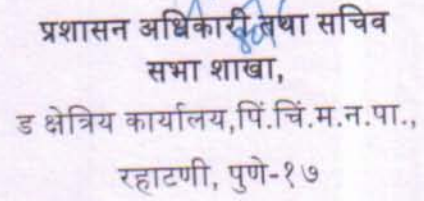 प्रशासन अधिकारी तथा सचिव
सभा शाखा,
ड क्षेत्रिय कार्यालय,पिं.चिं.म.न.पा.,
रहाटणी, पुणे-१७